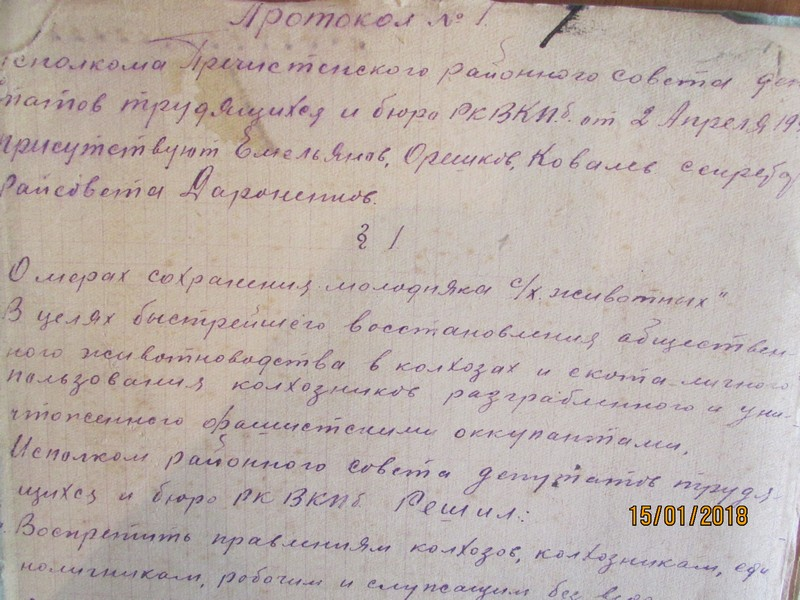 Протокол № 1.
исполкома Пречистенского районного совета деп
татов трудящихся и бюро РК ВКПб. от 2 Апреля 19
присутствуют Емельянов, Орешков, Ковалев секрет
Райсовета
§ 1
О мерах сохранения молодняка с/х. животных"
В целях быстрейшего восстановления обществен-
ного животноводства в колхозах и скота личного
пользования колхозников разграбленного и уни-
чтоженного фашистскими оккупантами,
Исполком районного совета депутатов трудя-
щихся и бюро РК ВКПб. Решил:
Воспретить правлениям колхозов, колхозникам, еди
ноличникам, рабочим и служащим без
15/01/2018